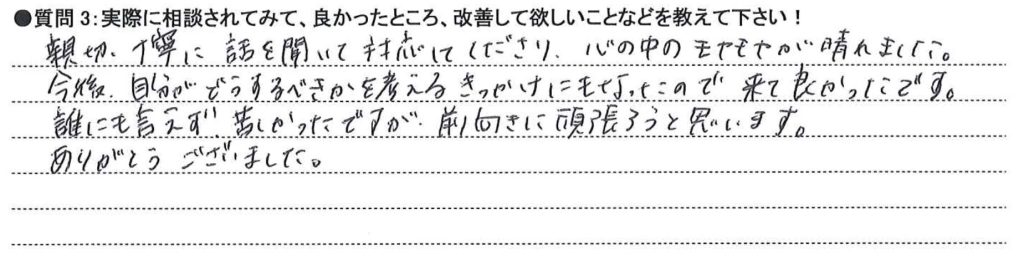 ●質問3:実際に相談されてみて、良かったところ、改善して欲しいことなどを教えて下さい!
親切、丁寧に話を聞いて対応してくださり、心の中のモヤモヤが晴れました。
今後、自分がどうするべきかを考えるきっかけにもなったので来て良かったです。
誰にも言えず、苦しかったですが、前向きに頑張ろうと思います。
ありがとうございました。